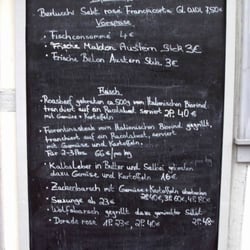 Berlucchi Sekt rosé Franciacorta Gl. 0,1l 7,50€
Vorspeise
• Fischconsommé 4€
• Frische Maldon Austern Stck 3€
• Frische Belon Austern Stck. 3€
Fleisch
• Roastbeef gebraten ca. 500g vom Italienischen Beorind
tranchiert auf ein Rucolabeet serviert 2P. 40€
mit Gemüse + Kartoffeln
• Fiorentinasteak vom Italienischen Beorind gegrillt
tranchiert auf ein Rucolabeet serviert
mit Gemüse und Kartoffeln.
Für 2-3 Pers 66€/pro kg
• Kalbsleber in Butter und Salbei gebraten
dazu Gemüse und Kartoffeln 16€
• Zackenbarsch mit Gemüse + Kartoffeln
2P. 40€, 3P. 60€, 4P. 80€
• Seezunge ab 23€
• Wolfsbarsch gegrillt dazu gemischter Salat 2P. 48.-
• Dorade rosé 1P. 23€, 2P. 40€